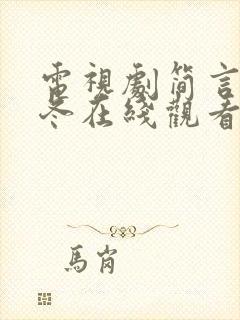 電視劇簡言
冬在綫觀看
馬崗